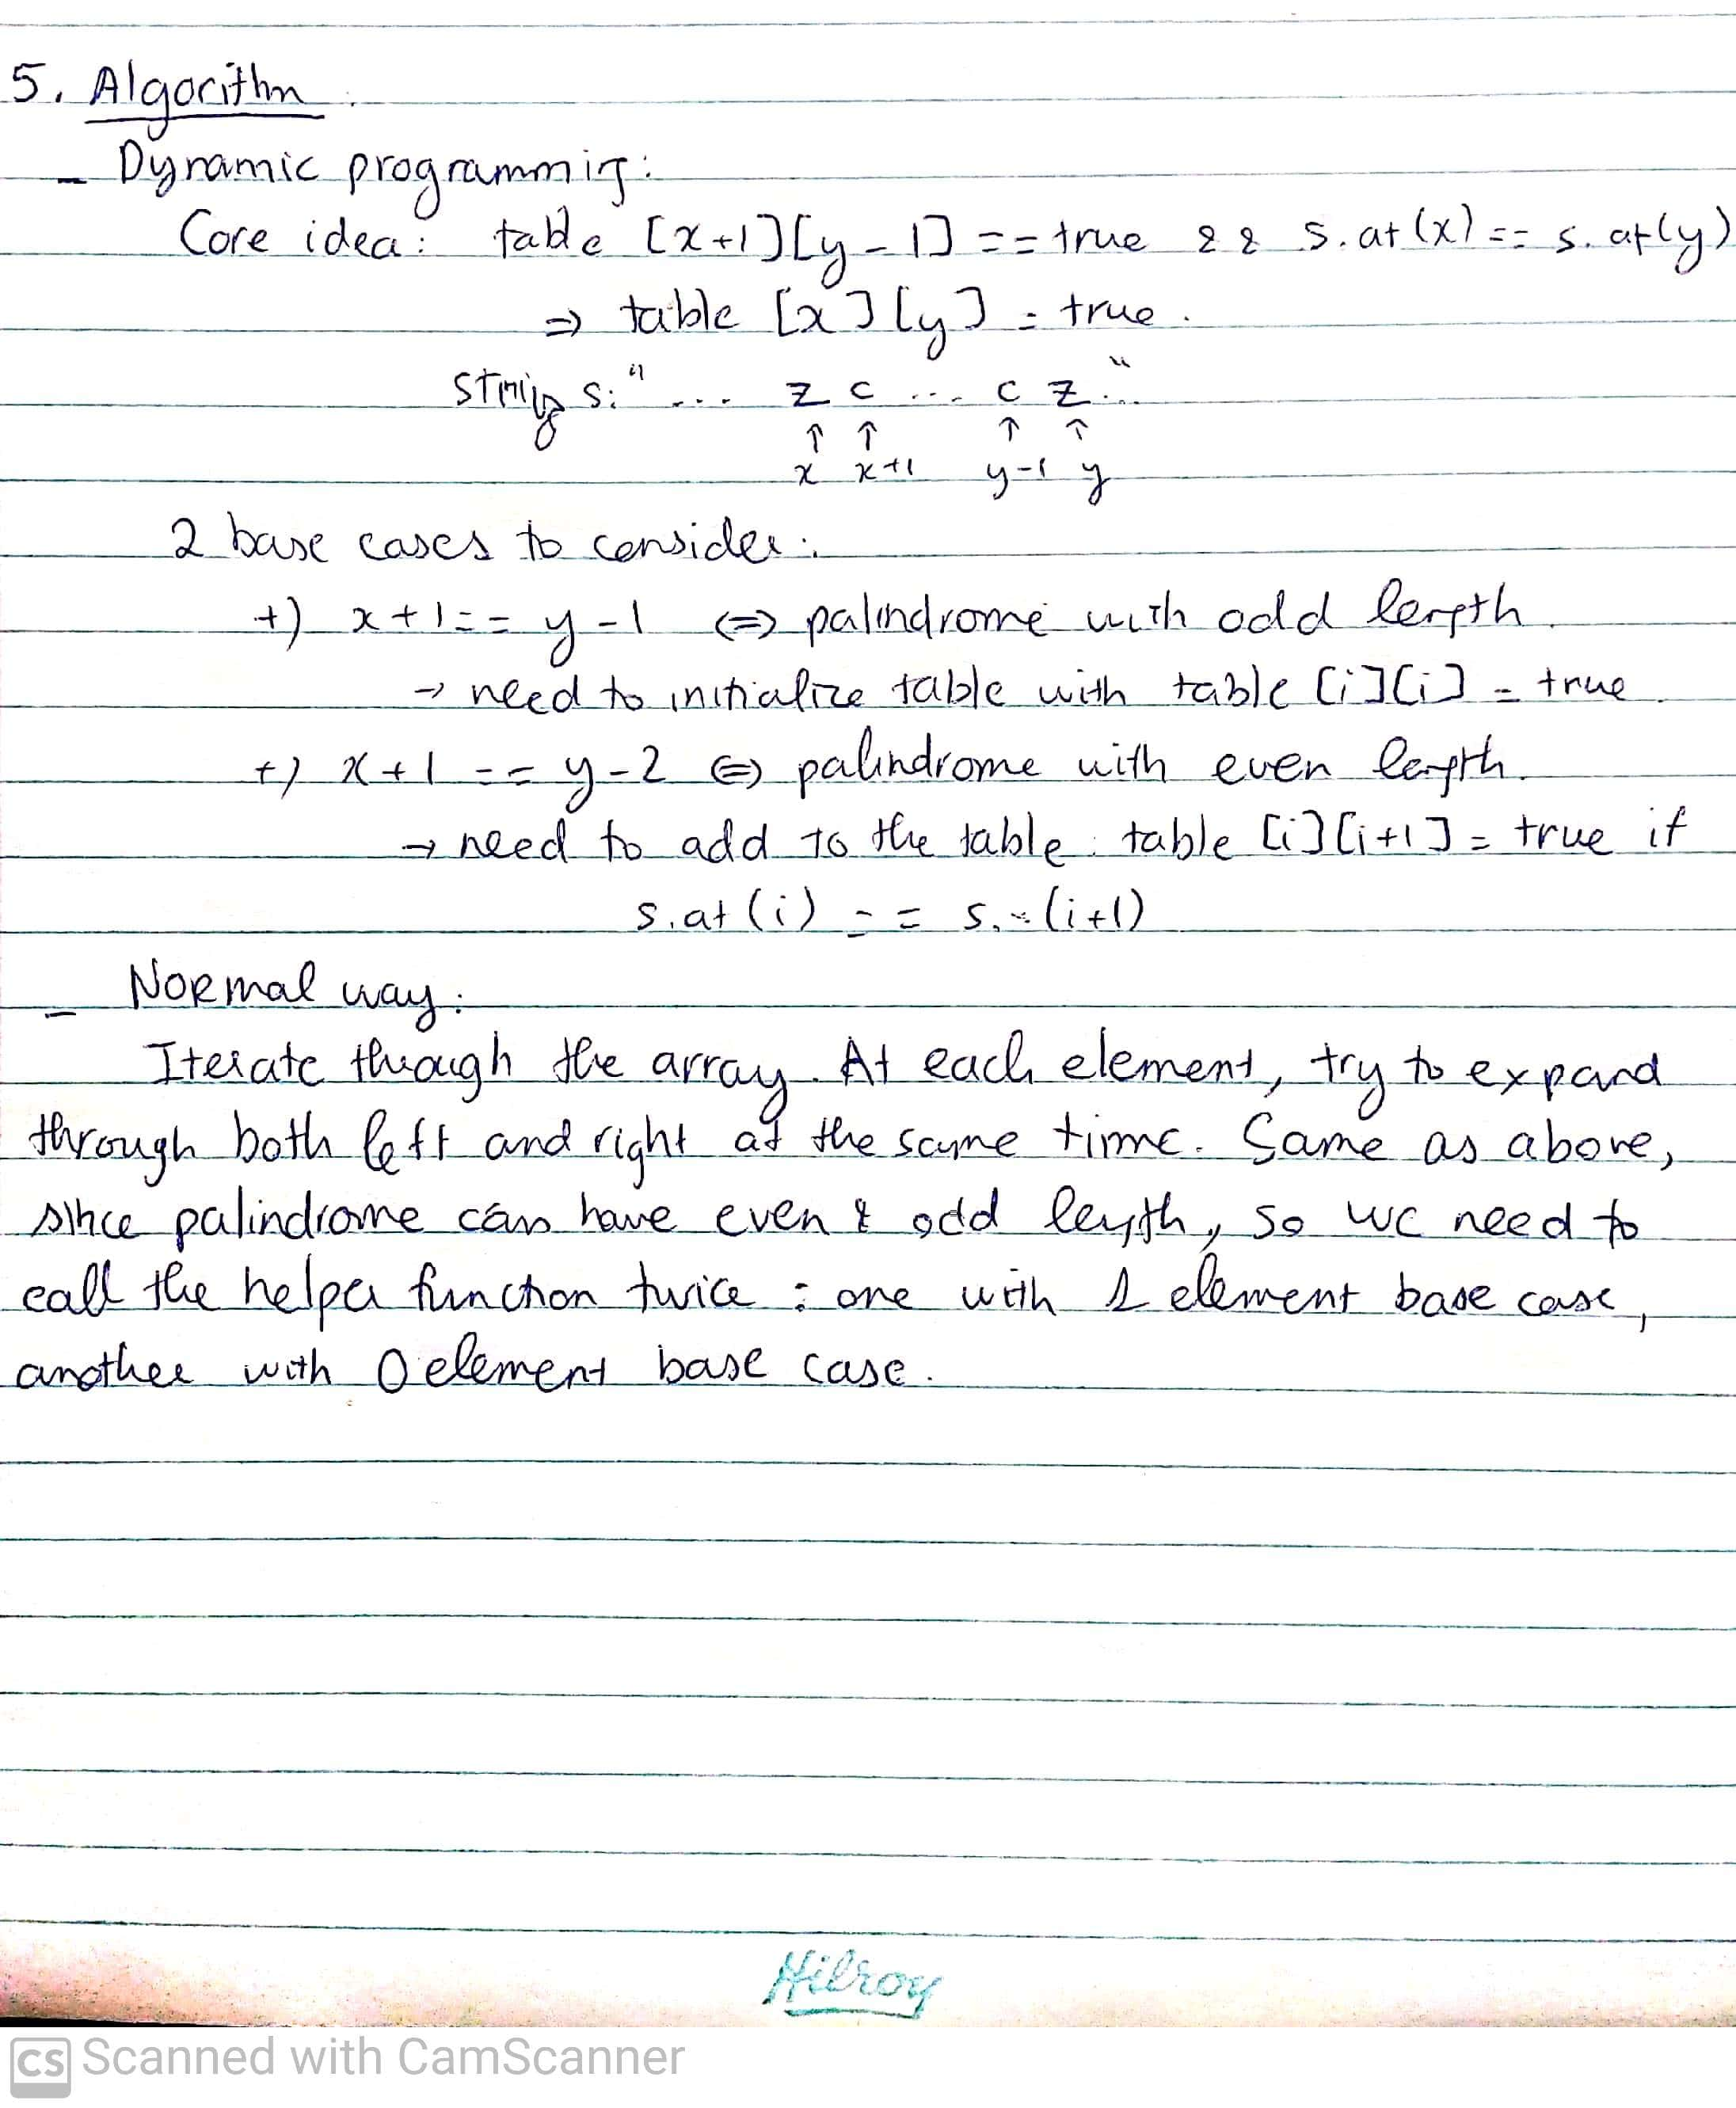 5. Algorithm
- Dynamic programming:
Core idea: table [x+1][y-1] == true && s.at(x) == s.at(y)
=> table [x][y] = true.
string s: " ... z c ... c z ... "
↑ ↑ ↑ ↑
x x+1 y-1 y
2 base cases to consider:
+) x+1 == y-1 <=> palindrome with odd length.
→ need to initialize table with table [i][i] = true.
+) x+1 == y-2 <=> palindrome with even length.
→ need to add to the table: table [i][i+1] = true if
s.at(i) == s.~(i+1)
- Normal way:
Iterate through the array. At each element, try to expand
through both left and right at the same time. Same as above,
since palindrome can have even & odd length, so we need to
call the helper function twice: one with 1 element base case,
another with 0 element base case.
Hilroy
CS Scanned with CamScanner